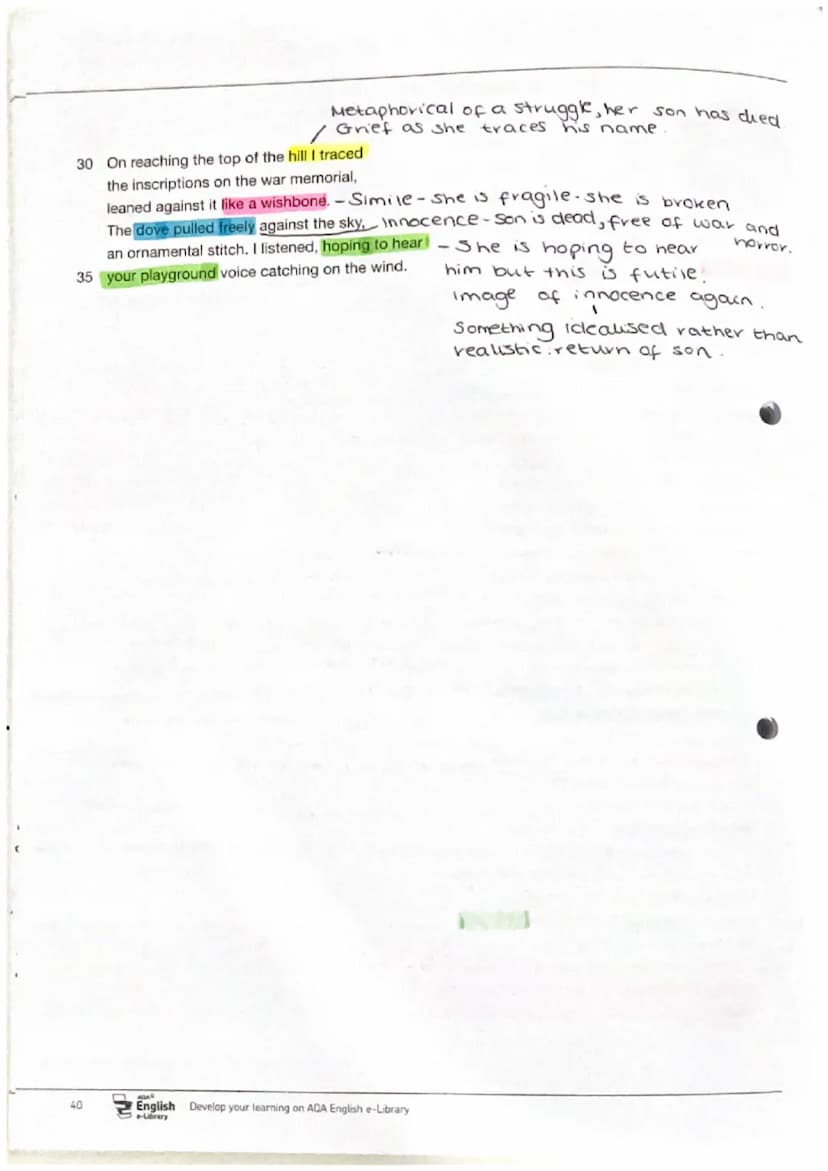 Metaphorical of a struggle, her son has died
Grief as she traces his name.
30 On reaching the top of the hill I traced
the inscriptions on the war memorial,
leaned against it like a wishbone. - Simile - she is fragile - she is broken
The dove pulled freely against the sky, Innocence - son is dead, free of war and horror.
an ornamental stitch. I listened, hoping to hear - She is hoping to hear
35 your playground voice catching on the wind. him but this is futile.
Image of innocence again.
Something idealised rather than
realistic. return of son.
40 AQA English e-Library Develop your learning on AQA English e-Library